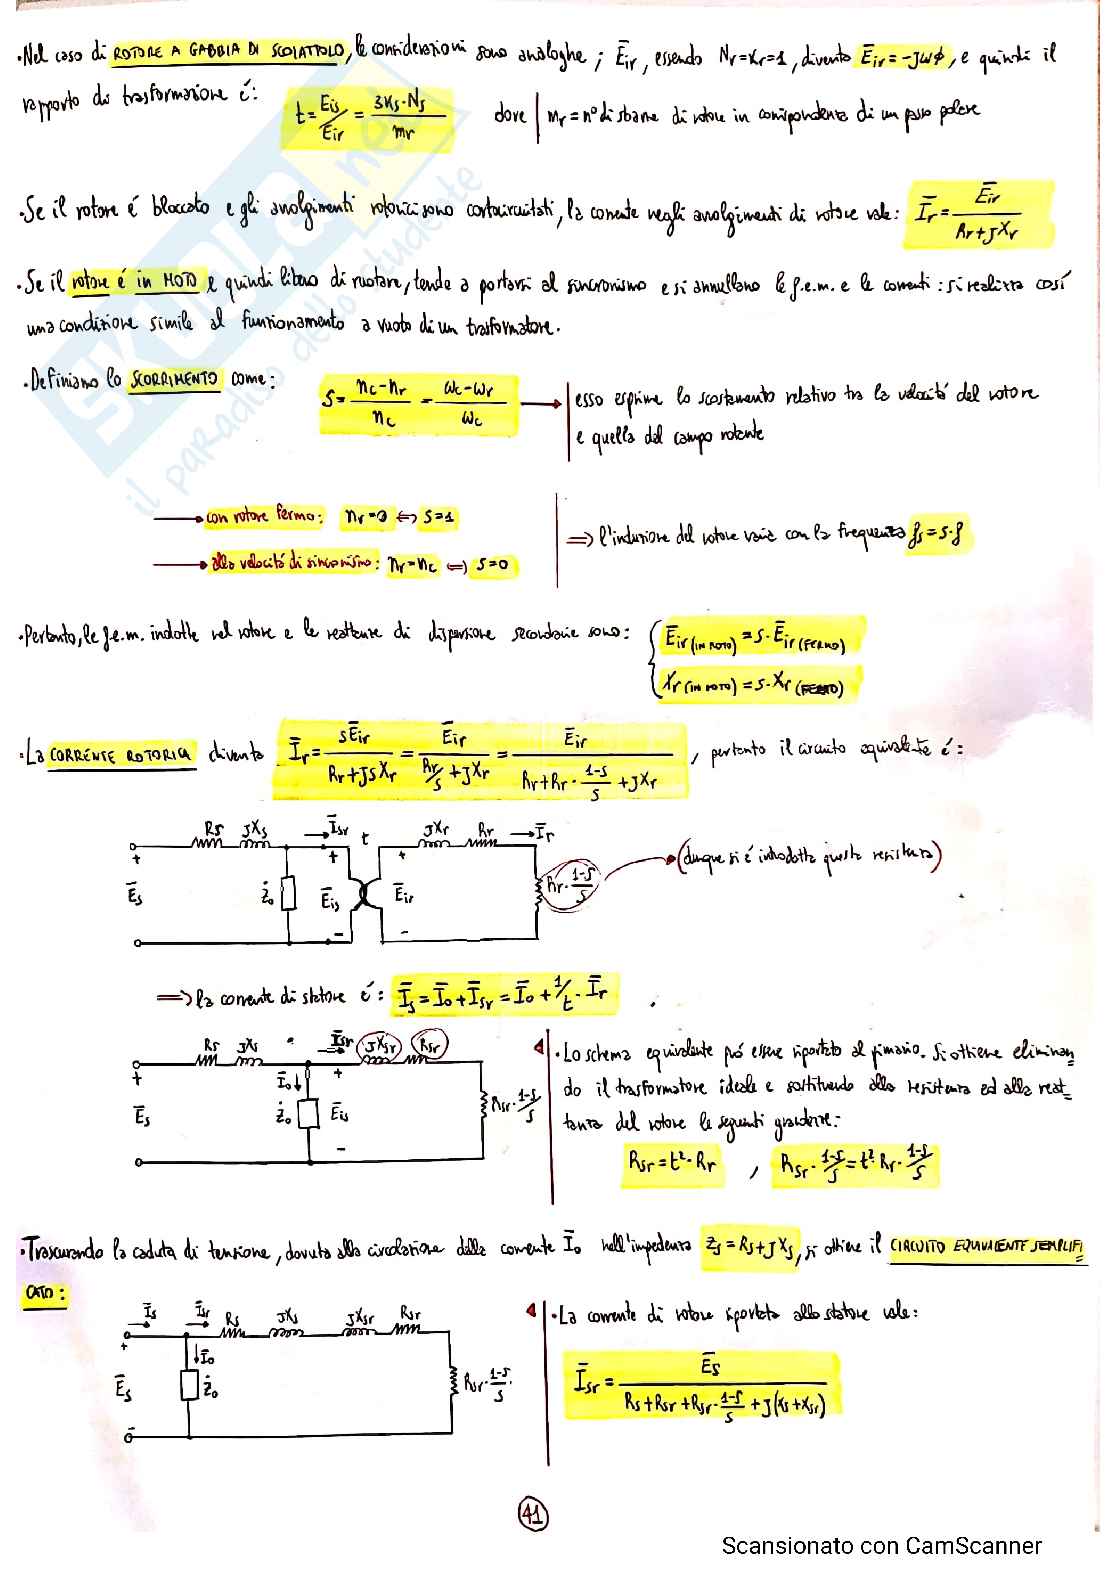 ·Nel caso di ROTORE A GABBIA DI SCOIATTOLO, le considerazioni sono analoghe; Ēir, essendo Nr=Kr=1, diventa Ēir=-jωϕ, e quindi il
rapporto di trasformazione é:
t = Eis/Eir = 3Ks·Ns/mr
dove | mr = n° di sbarre di rotore in corrispondenza di un passo polare
·Se il rotore é bloccato e gli avvolgimenti rotorici sono cortocircuitati, la corrente negli avvolgimenti di rotore vale: Īr = Ēir/(Rr+jXr)
·Se il rotore é in MOTO e quindi libero di ruotare, tende a portarsi al sincronismo e si annullano le f.e.m. e le correnti: si realizza così
una condizione simile al funzionamento a vuoto di un trasformatore.
·Definiamo lo SCORRIMENTO come:
S = (nc-nr)/nc = (ωc-ωr)/ωc →
esso esprime lo scostamento relativo tra la velocitá del rotore
e quella del campo rotante
→ con rotore fermo: nr=0 ⇔ S=1
→ alla velocitá di sincronismo: nr=nc ⇔ S=0
⇒ l'induzione del rotore varia con la frequenza fs=s·f
·Pertanto, le f.e.m. indotte nel rotore e le reattanze di dispersione secondarie sono:
Ēir (IN MOTO) = s·Ēir (FERMO)
Xr (IN MOTO) = s·Xr (FERMO)
·La CORRENTE ROTORICA diventa Īr = sĒir/(Rr+jsXr) = Ēir/(Rr/s+jXr) = Ēir/(Rr+Rr·(1-s)/s+jXr), pertanto il circuito equivalente é:
Rs jXs Īsr t jXr Rr → Īr
+ + +
Ēs Żo Ēis Ēir Rr·(1-s)/s
- -
(dunque si é introdotta questa resistenza)
⇒ la corrente di statore é: Īs = Īo+Īsr = Īo+1/t·Īr
Rs jXs Īsr jXsr Rsr
+ Īo +
Ēs Żo Ēis Rsr·(1-s)/s
-
·Lo schema equivalente puó essere riportato al primario. Si ottiene eliminan-
do il trasformatore ideale e sostituendo alla resistenza ed alla reat-
tanza del rotore le seguenti grandezze:
Rsr = t²·Rr , Rsr·(1-s)/s = t²·Rr·(1-s)/s
·Trascurando la caduta di tensione, dovuta alla circolazione della corrente Īo nell'impedenza Żs=Rs+jXs, si ottiene il CIRCUITO EQUIVALENTE SEMPLIFI
CATO:
Īs Īsr Rs jXs jXsr Rsr
+ Īo
Ēs Żo Rsr·(1-s)/s
-
·La corrente di rotore riportata allo statore vale:
Īsr = Ēs/(Rs+Rsr+Rsr·(1-s)/s+j(Xs+Xsr))
41
Scansionato con CamScanner
SKUOLA.net
il paradiso dello studente